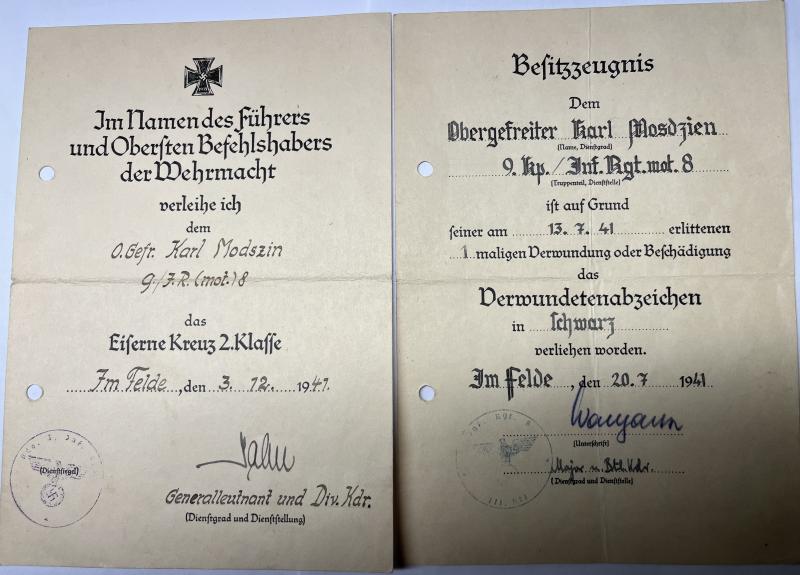 Im Namen des Führers
und Obersten Befehlshabers
der Wehrmacht
verleihe ich
dem
O.Gefr. Karl Modszin
9./J.R.(mot.) 8
das
Eiserne Kreuz 2. Klasse
Im Felde, den 3. 12. 1941.
(Dienstsiegel)
Generalleutnant und Div. Kdr.
(Dienstgrad und Dienststellung)
Besitzzeugnis
Dem
Obergefreiter Karl Mosdzien
(Name, Dienstgrad)
9. Kp./Inf. Rgt. mot. 8
(Truppenteil, Dienststelle)
ist auf Grund
seiner am 13. 7. 41 erlittenen
1 maligen Verwundung oder Beschädigung
das
Verwundetenabzeichen
in schwarz
verliehen worden.
Im Felde, den 20. 7 1941
(Unterschrift)
Major u. Btl. Kdr.
(Dienstgrad und Dienststelle)